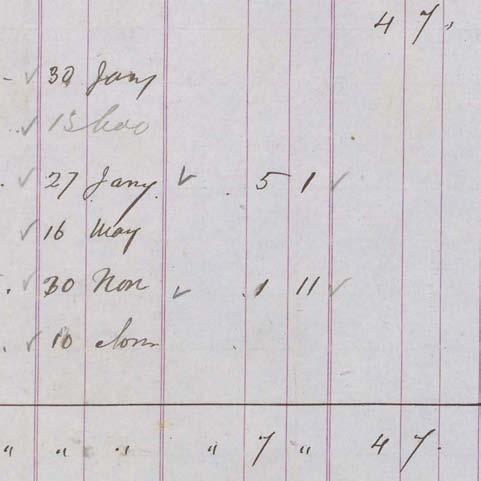 4 7 "
- ✓ 30 Jany
✓ 13
✓ 27 Jany. ✓ . 5 1 ✓
✓ 16 May
. ✓ 30 Nov ✓ . 1 11 ✓
. ✓ 10
" " " " 7 " 4 7 .